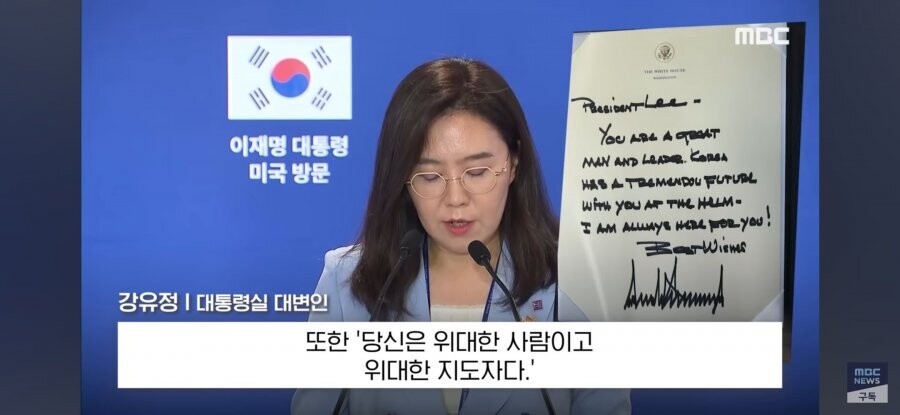 MBC
THE WHITE HOUSE
WASHINGTON
PRESIDENT LEE -
YOU ARE A GREAT
MAN AND LEADER. KOREA
HAS A TREMENDOU FUTURE
WITH YOU AT THE HELM -
I AM ALWAYS HERE FOR YOU!
BEST WISHES
이재명 대통령
미국 방문
강유정 | 대통령실 대변인
또한 '당신은 위대한 사람이고
위대한 지도자다.'
MBC
NEWS
구독